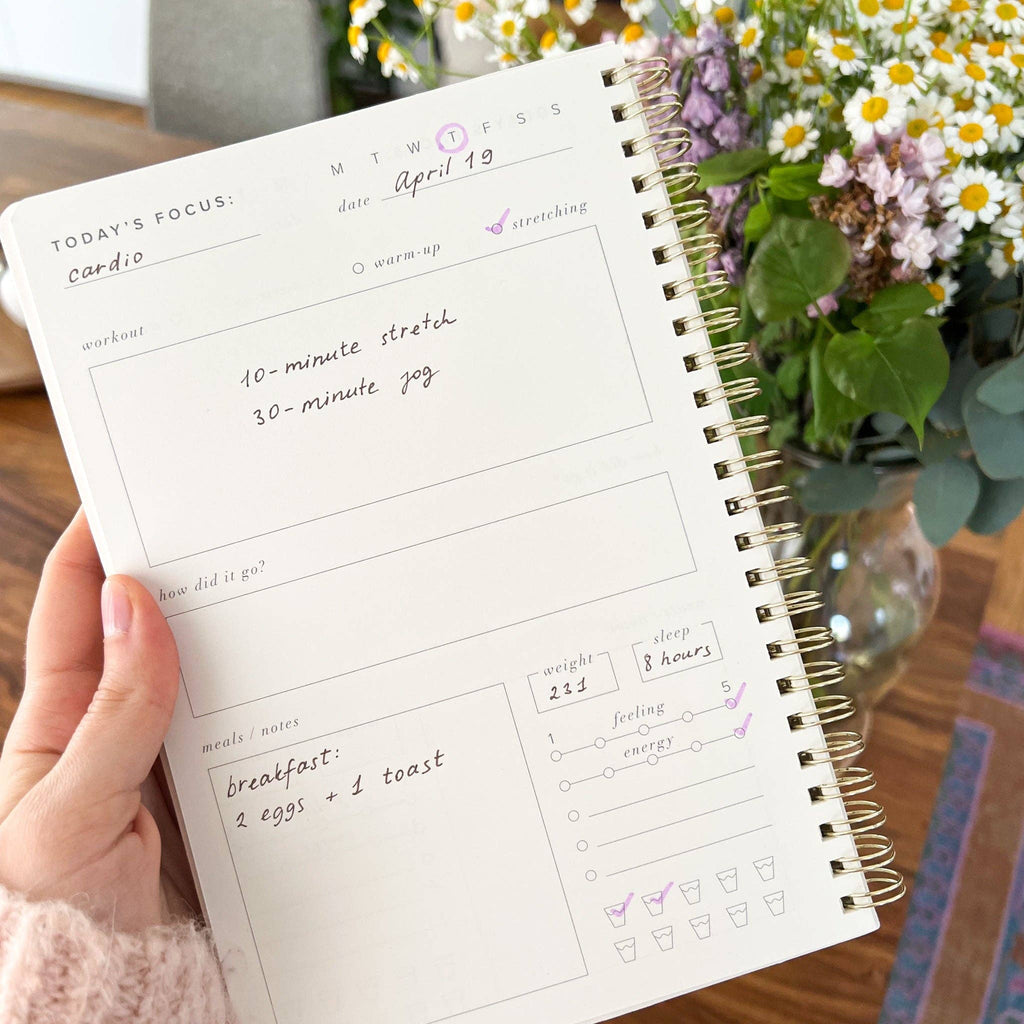 M T W T F S S
date april 19
TODAY'S FOCUS:
cardio
warm-up stretching
workout
10-minute stretch
30-minute jog
how did it go?
weight
231
sleep
8 hours
feeling
1 5
energy
meals / notes
breakfast:
2 eggs + 1 toast